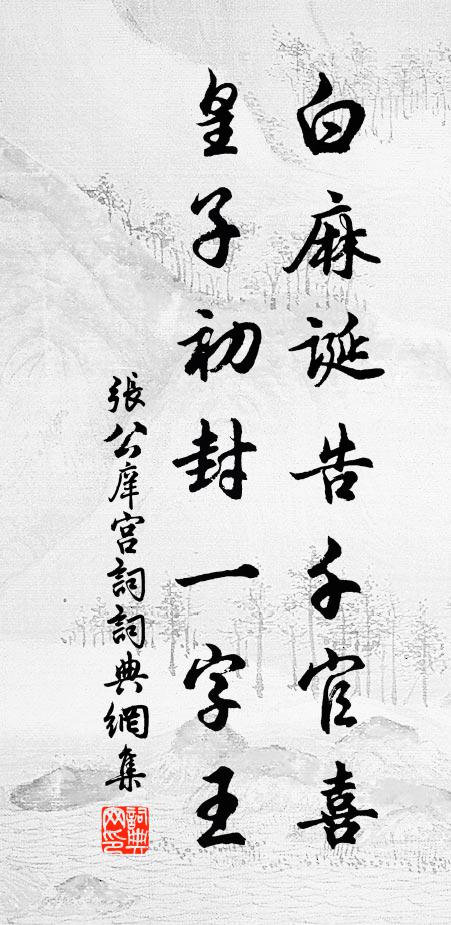 白麻誕告千官喜
皇子初封一字王
張公庠宮詞詞典網集
詞典網印